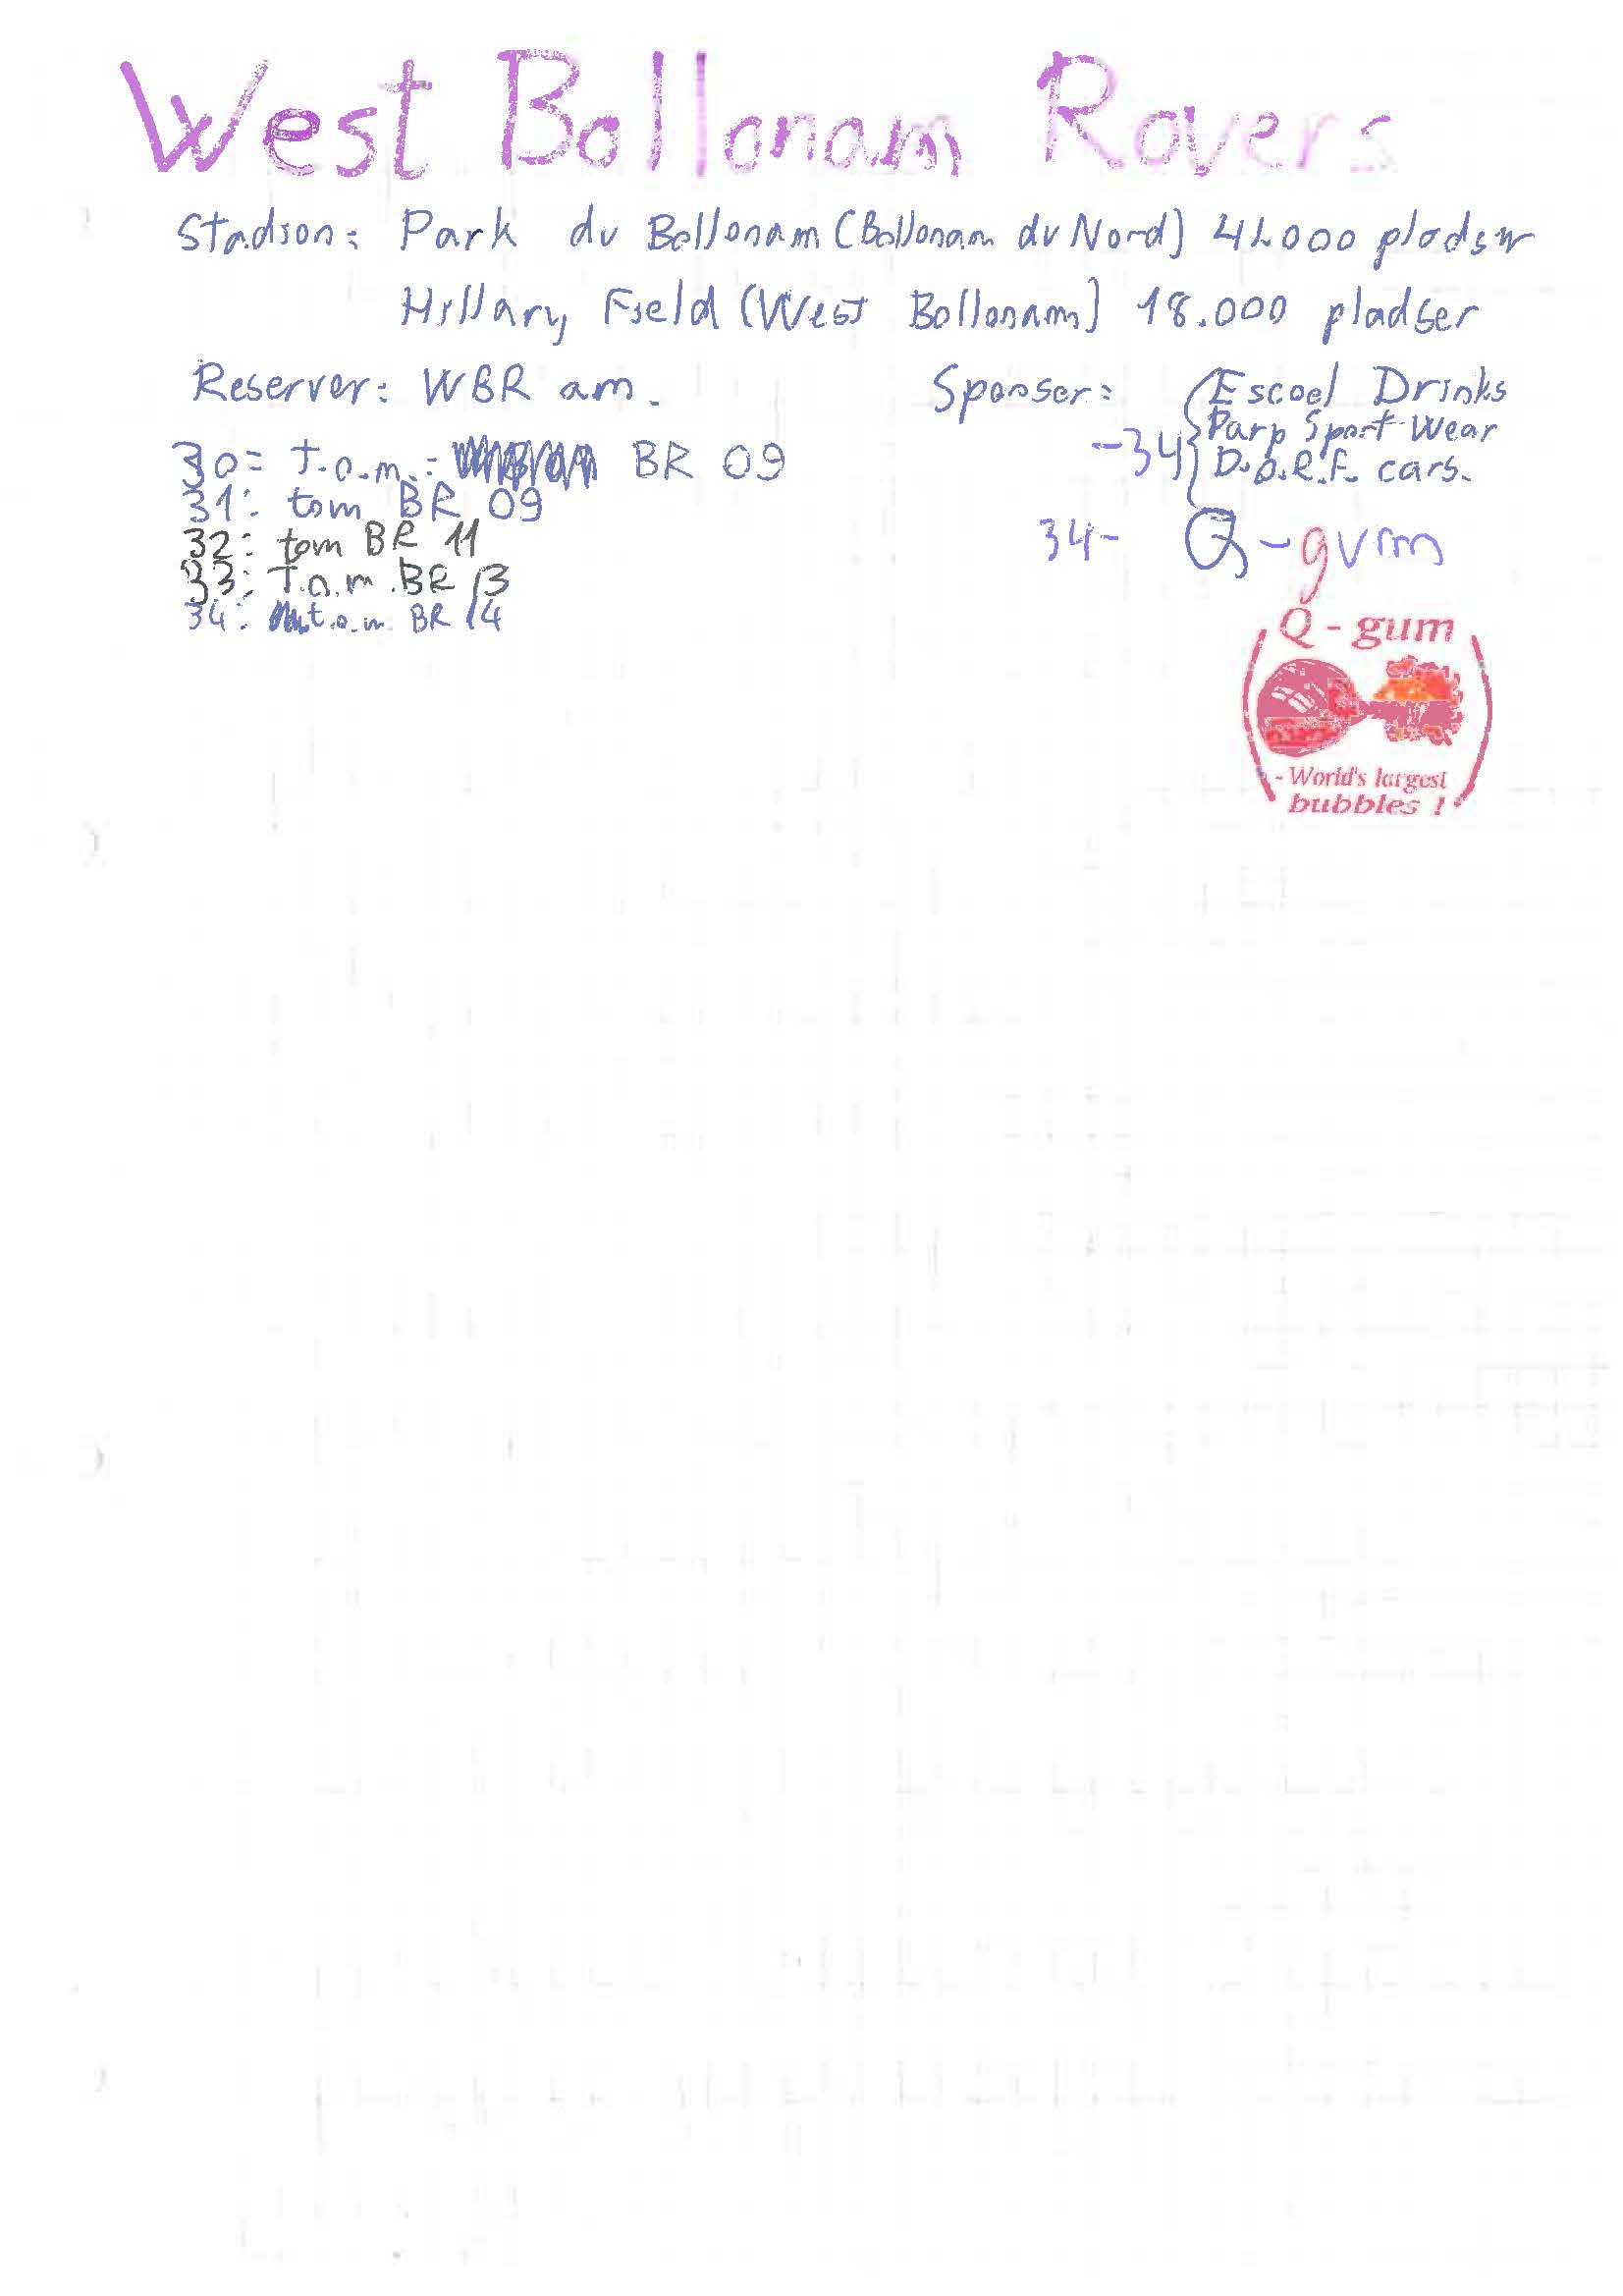 West Bollonam Rovers
Stadion: Park du Bollonam (Bollonam du Nord) 42.000 pladser
Hillary Field (West Bollonam) 18.000 pladser
Reserver: WBR am.
Sponser: Escoel Drinks
Parp Sport Wear
-34 D.O.R.F. cars.
30: t.o.m.: BR 09
31: tom BR 09
32: tom BR 11
33: T.o.m. BR 13
34: t.o.m. BR 14
34- Q-gum
Q - gum
- World's largest
bubbles !